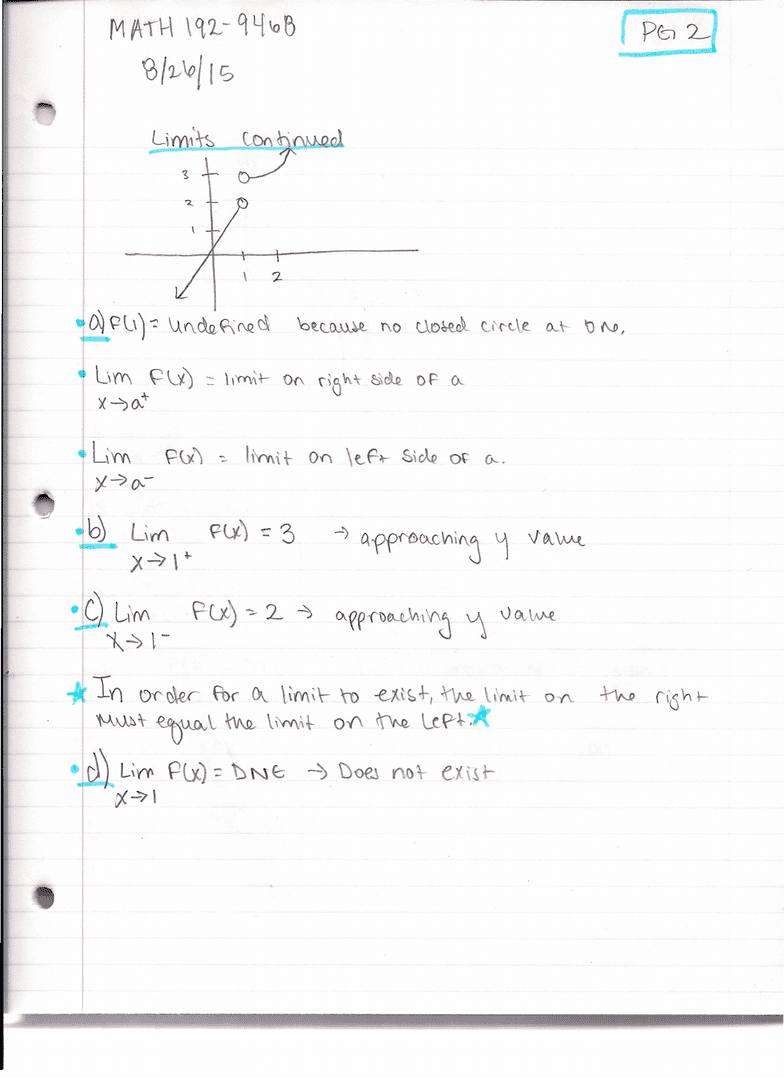 MATH 192-946B
PG 2
8/26/15
Limits continued
3
2
1
1 2
a) f(1) = undefined because no closed circle at one.
Lim f(x) = limit on right side of a
x→a⁺
Lim f(x) = limit on left side of a.
x→a⁻
b) Lim f(x) = 3 → approaching y value
x→1⁺
c) Lim f(x) = 2 → approaching y value
x→1⁻
★ In order for a limit to exist, the limit on the right
must equal the limit on the left.★
d) Lim f(x) = DNE → Does not exist
x→1